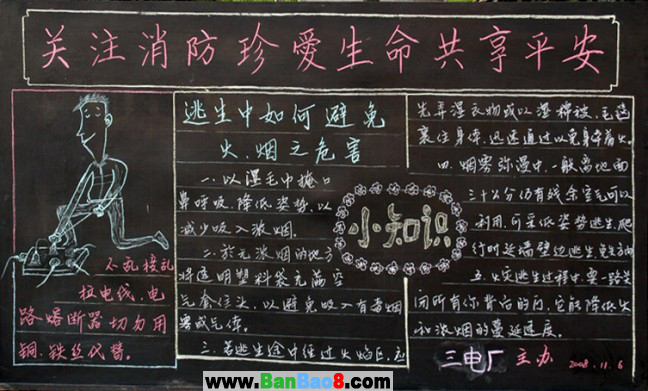 关注消防珍爱生命共享平安
不乱接乱
拉电线,电
路熔断器切勿用
铜、铁丝代替。
逃生中如何避免
火、烟之危害
一.以湿毛巾掩口
鼻呼吸,降低姿势,以
减少吸入浓烟.
二.於无浓烟的地方
将透明塑料袋充满空
气套住头,以避免吸入有毒烟
雾或气体.
三.若逃生途中经过火焰区,应
小知识
先弄湿衣物或以湿棉被、毛毯
裹住身体,迅速通过以免身体着火.
四.烟雾弥漫中,一般离地面
三十公分仍有残余空气可以
利用,可采低姿势逃生,爬
行时
沿墙壁边逃生,免生方向
五.火灾逃生过程中,要一路关
闭所有你背后的门,它能降低火
和浓烟的蔓延速度.
三电厂 主办 2008.11.6
www.BanBao8.com